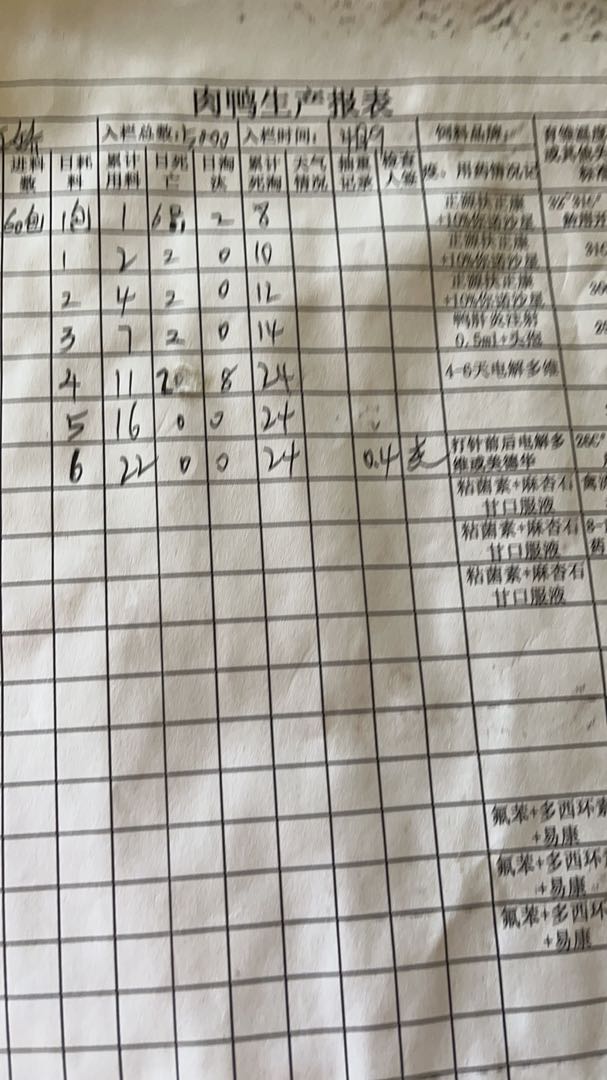 肉鸭生产报表
入栏总数: 5000 入栏时间: 4月9 饲料品牌: 有效温度
进料数 日耗料 累计用料 日死亡 日淘汰 累计死淘 天气情况 抽重记录 检查人签 度。用药情况记 或其他头
60包 1包 1 6只 2 8 正源扶正康+10%你诺沙星
1 2 2 0 10 正源扶正康+10%你诺沙星
2 4 2 0 12 正源扶正康+10%你诺沙星
3 7 2 0 14 鸭肝炎注射0.5ml+头孢
4 11 8 24 4-6天电解多维
5 16 0 0 24
6 22 0 0 24 0.4 打针前后电解多维或美德华
粘菌素+麻杏石甘口服液
粘菌素+麻杏石甘口服液 药
粘菌素+麻杏石甘口服液
氟苯+多西环素+易康
氟苯+多西环+易康
氟苯+多西+易康